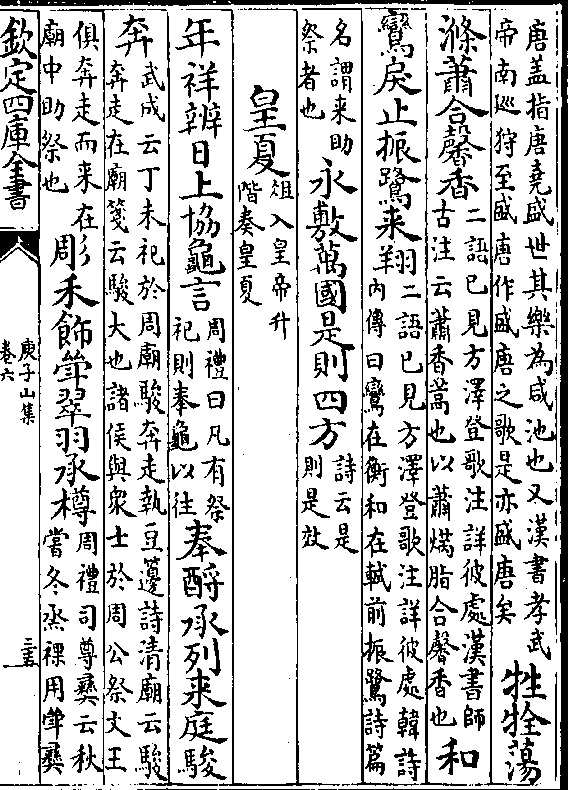 唐盖指唐堯盛世其樂為咸池也又漢書孝武
帝南廵狩至盛唐作盛唐之歌是亦盛唐矣
牲牷蕩
滌蕭合馨香
二語已見方澤登歌注詳彼處漢書師
古注云蕭香蒿也以蕭焫脂合馨香也
和
鸞戾止振鷺来翔
二語已見方澤登歌注詳彼處韓詩
内傳曰鸞在衡和在軾前振鷺詩篇
名謂来助
祭者也
永敷萬國是則四方
詩云是
則是效
皇夏
俎入皇帝升
階奏皇夏
年祥辨日上協龜言
周禮曰凡有祭
祀則奉龜以往
奉酹承列来庭駿
奔
武成云丁未祀於周廟駿奔走執豆籩詩清廟云駿
奔走在廟箋云駿大也諸侯與衆士於周公祭文王
俱奔走而来在
廟中助祭也
彫禾飾斚翠羽承樽
周禮司尊彛云秋
嘗冬烝祼用斚彛
欽定四庫全書
庾子山集
卷六
三五